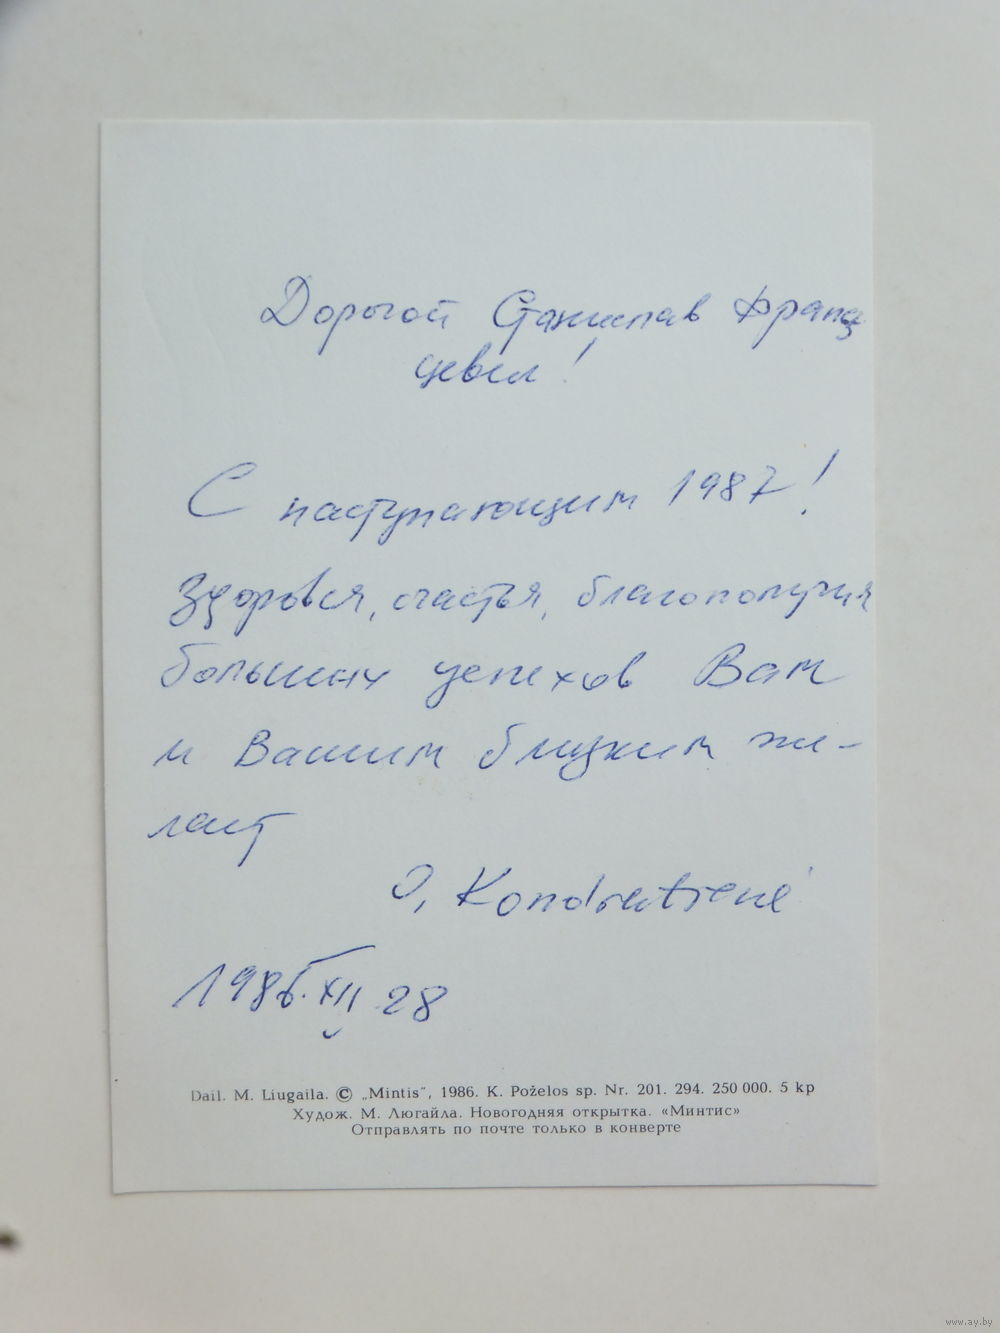 Дорогой Станислав Франц
цевич!
С наступающим 1987!
Здоровья, счастья, благополучия
больших успехов Вам
и Вашим близким жи-
лает
O, Kondratienė
1986.XII 28
Dail. M. Liugaila. © „Mintis", 1986. K. Poželos sp. Nr. 201. 294. 250 000. 5 kp
Худож. М. Люгайла. Новогодняя открытка. «Минтис»
Отправлять по почте только в конверте
www.ay.by